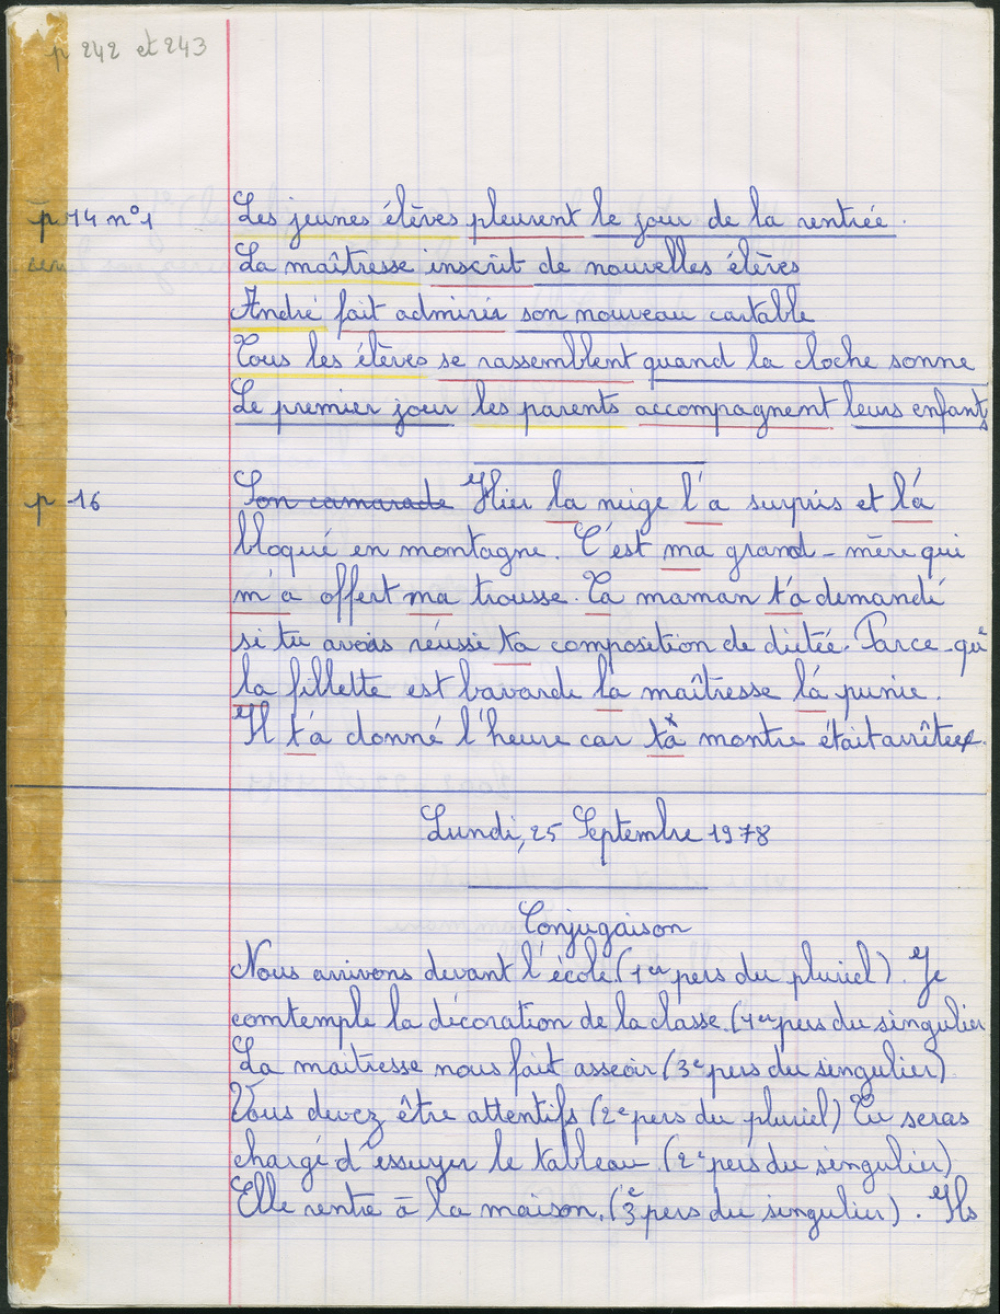 p 242 et 243
p 14 n° 1
Les jeunes élèves pleurent le jour de la rentrée.
La maîtresse inscrit de nouvelles élèves
André fait admirer son nouveau cartable
Tous les élèves se rassemblent quand la cloche sonne
Le premier jour les parents accompagnent leurs enfants
p 16
Son camarade Hier la neige l'a surpris et l'a
bloqué en montagne. C'est ma grand-mère qui
m'a offert ma trousse. Ta maman t'a demandé
si tu avais réussi ta composition de dictée. Parce-que
la fillette est bavarde la maîtresse l'a punie.
Il t'a donné l'heure car ta montre était arrêtée.
Lundi, 25 Septembre 1978
Conjugaison
Nous arrivons devant l'école. (1er pers du pluriel). Je
comtemple la décoration de la classe. (1er pers du singulier
La maitresse nous fait asseoir (3e pers du singulier)
Vous devez être attentifs (2e pers du pluriel) Tu seras
chargé d'essuyer le tableau. (2e pers du singulier)
Elle rentre à la maison. (3e pers du singulier). Ils